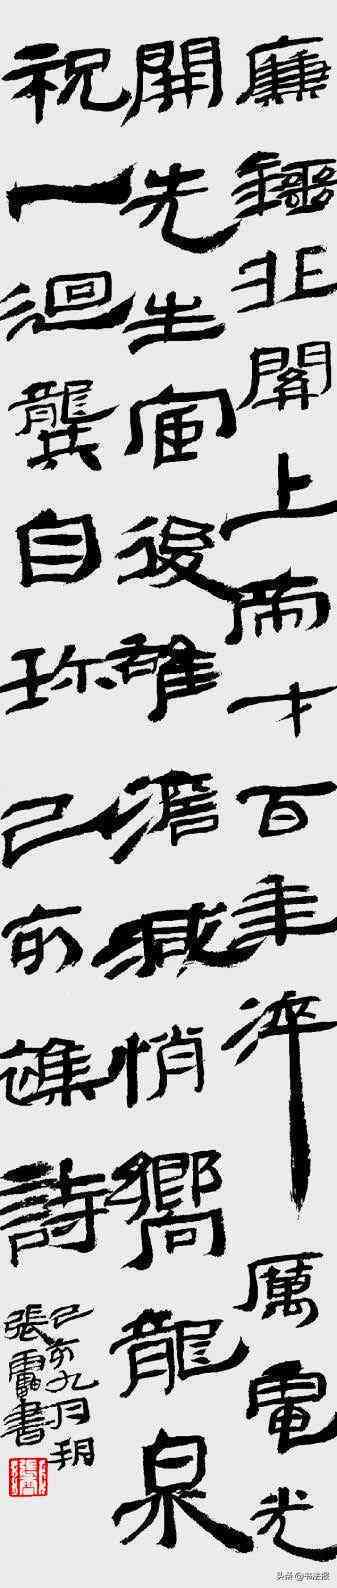 廉鍔非關上帝才百年淬厲電光
開先生宦後雄澹減悄嚮龍泉
祝一迴龔自珍己亥雜詩
己亥九月
張靁書
头条 @书法报